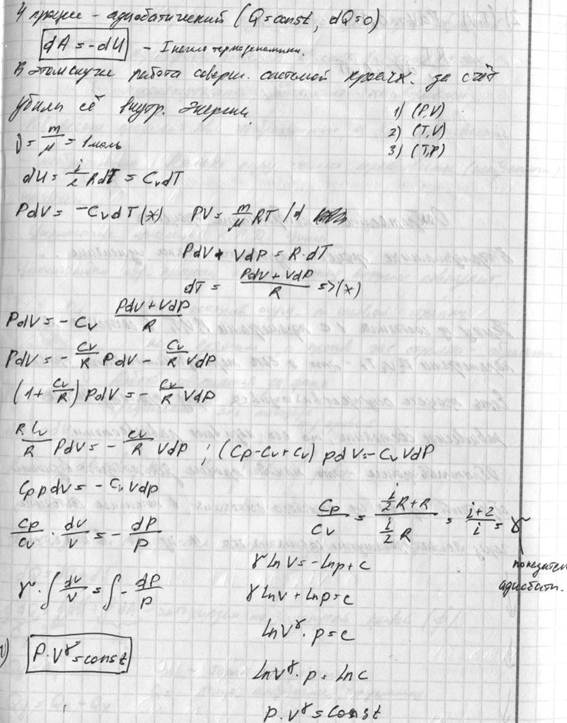 4 процес - адиабатический (Q=const, dQ=0)
dA = -dU - I начало термодинамики.
В этом случае работа соверш. системой происх. за счёт
убыли её внутр. энергии.
1) (P,V)
2) (T,V)
3) (T,P)
ν = m/μ = 1 моль
dU = i/2 RdT = CvdT
PdV = -CvdT (x) PV = m/μ RT /d
PdV + VdP = R·dT
dT = (PdV + VdP)/R => (x)
PdV = -Cv (PdV + VdP)/R
PdV = -Cv/R PdV - Cv/R VdP
(1 + Cv/R) PdV = -Cv/R VdP
R Cv/R PdV = -Cv/R VdP ; (Cp - Cv + Cv) pdV = -CvVdP
CppdV = -CvVdp
Cp/Cv · dV/V = -dP/P
Cp/Cv = (i/2 R + R)/(i/2 R) = (i+2)/i = γ
показатель
адиабаты.
γ·∫dV/V = ∫-dP/P
γlnV = -lnp + c
γlnV + lnp = c
lnV^γ · p = c
1) P·V^γ = const
lnV^γ · p = lnc
p·V^γ = const